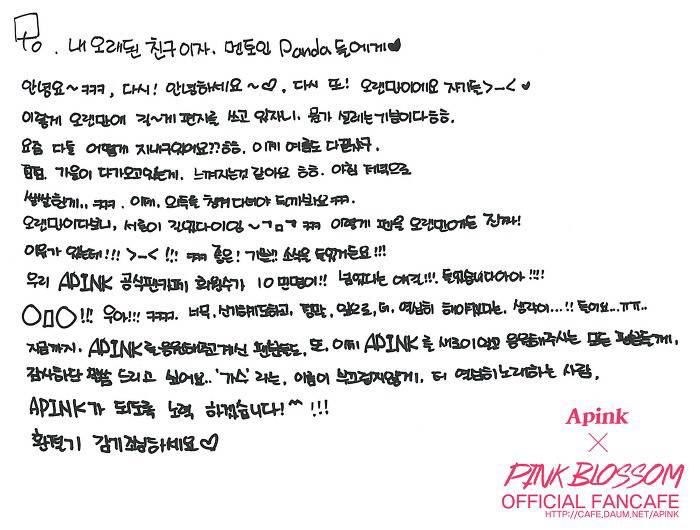 To. 내 오래된 친구이자, 멘토인 Panda들에게♥
안녕요~ㅋㅋㅋ, 다시! 안녕하세요~♡, 다시 또! 오랜만이에요 자기들>_<♥
이렇게 오랜만에 길~게 편지를 쓰고 있자니, 뭔가 설레는기분이다ㅎㅎ.
요즘 다들 어떻게 지내구있어요??ㅎㅎ. 이제 여름도 다갔나구.
가을이 다가오고있는게, 느껴지는것 같아요 ㅎㅎ. 아침 저녁으로
쌀쌀한게.. ㅋㅋ. 이제, 외투를 챙겨 다녀야 되나봐요ㅋㅋ.
오랜만이다보니, 서론이 길었다이잉~ㄱㅁㄱ ㅋㅋ 이렇게 펜을 오랜만에든 진짜!
이유가 있는데!!! >_< !!! ㅋㅋ 좋은! 기쁜!! 소식을 들었거든요!!!
우리 APINK 공식팬카페 회원수가 10만명이!! 넘었다는 얘긴!!!. 들었습니다아아 !!!!
OㅁO!! 우아!!! ㅋㅋㅋ. 너무, 신기하기도하고, 정말, 앞으로, 더, 열심히 해야겠다는, 생각이...!! 들어요...ㅠㅠ..
지금까지. APINK를응원해주고계신 팬분들도, 또, 이제 APINK를 새로이알고 응원해주시는 모든 팬분들께,
감사하단 말씀 드리고 싶어요.. '가수' 라는, 이름이 부끄럽지않게, 더 열심히노래하는 사람,
APINK가 되도록 노력 하겠습니다!^^ !!!
환절기 감기조심하세요♡
Apink
×
PINK BLOSSOM
OFFICIAL FANCAFE
HTTP://CAFE.DAUM.NET/APINK